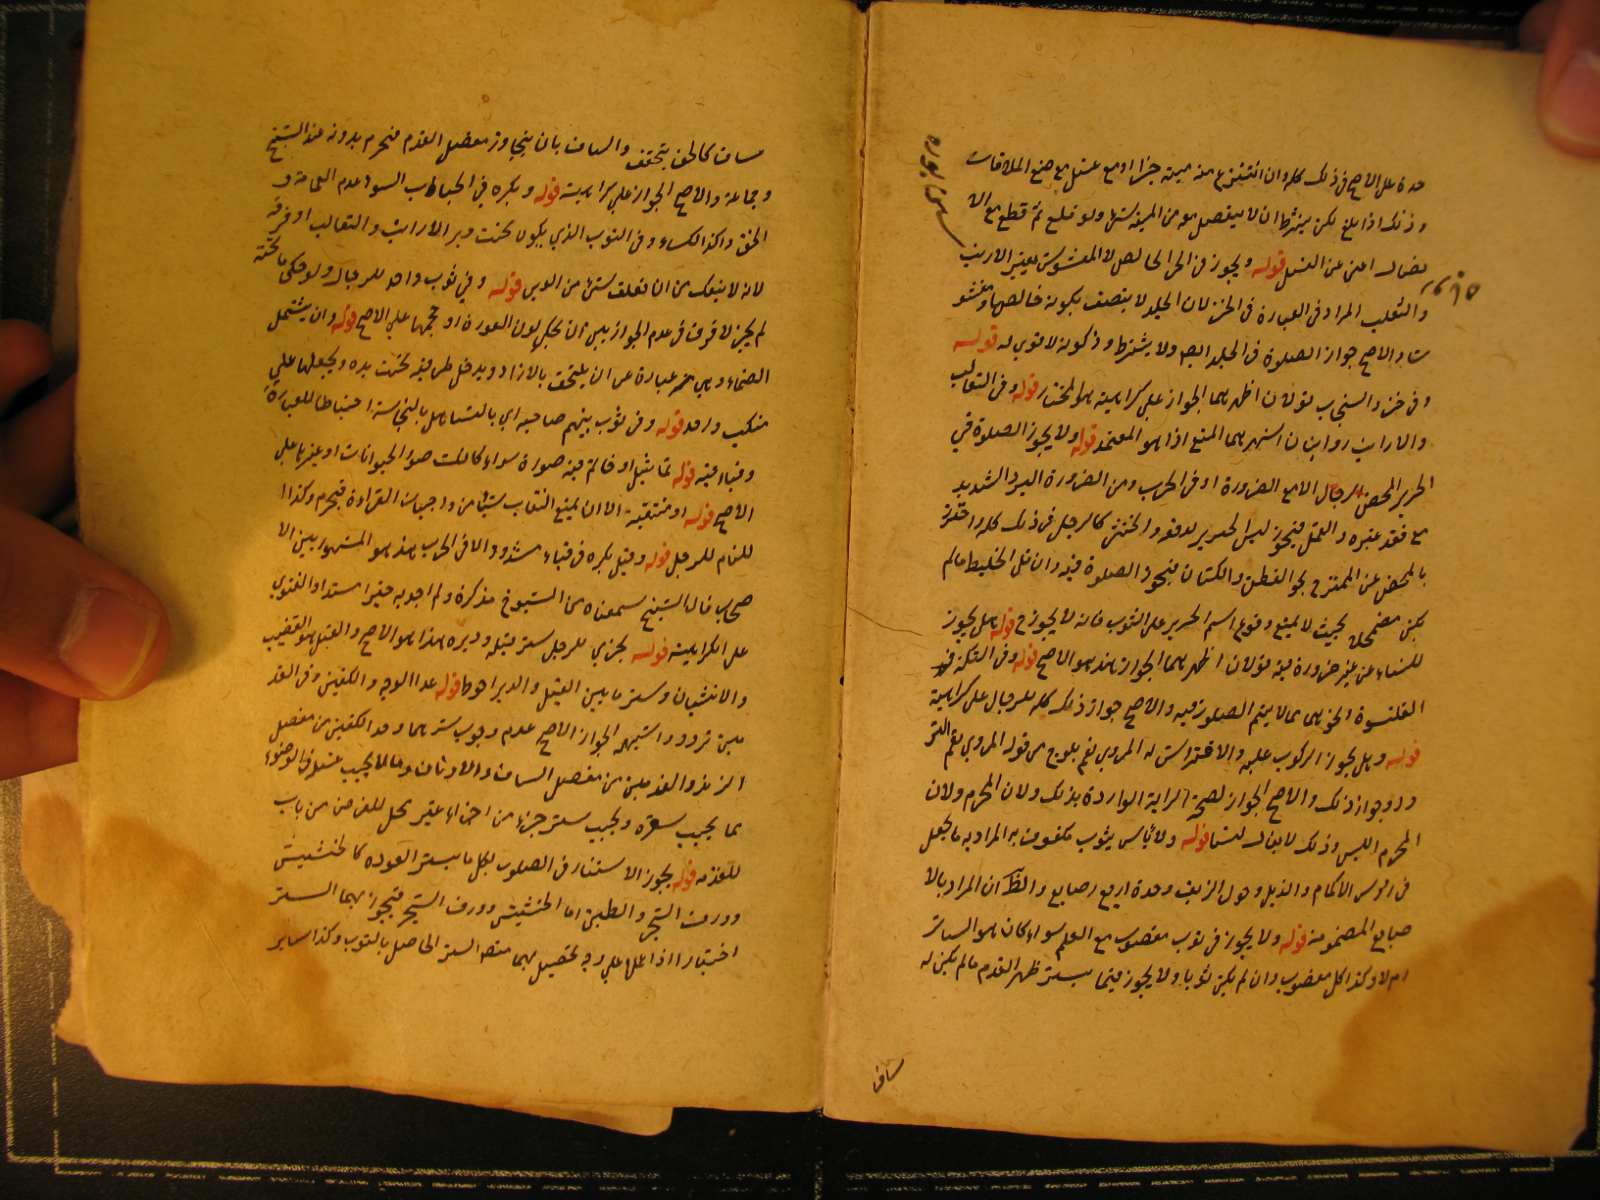 حدة على الاصح في ذلك كله وان انتفع منه ميتة جزا او مع غسل موضع الملاقات
وذلك اذا بلغ لكن يشترط ان لا ينفصل معه من الميتة شيء ولو قلع ثم قطع مع الا
تصال اغنى عن الغسل قوله ويجوز في الخز الخالص لا المغشوش بوبر الارانب
والثعلب المراد في العبارة في الخز لان الجلد لا يتصف بكونه خالصا ومغشو
شا والاصح جواز الصلوة في الجلد ايضا ولا يشترط وذكوته لا قوي له قوله
وفي فرو السنجاب قولان اظهرهما الجواز على كراهية هو المختار قوله وفي الثعالب
والارانب روايتان اشهرهما المنع اذا هو المعتمد قوله ولا يجوز الصلوة في
الحرير المحض للرجال الا مع الضرورة او في الحرب ومن الضرورة البرد الشديد
مع فقد غيره والقمل فيجوز لبس الحرير لدفعه والخنثى كالرجل في ذلك كله واحترز
بالمحض عن الممتزج بنحو القطن والكتان فيجوز الصلوة فيه وان قل الخليط ما لم
يكن مضمحلا بحيث لا يمنع وقوع اسم الحرير على الثوب فانه لا يجوز ح قوله هل يجوز
للنساء من غير ضرورة فيه قولان اظهرهما الجواز هذا هو الاصح قوله وفي التكة و
القلنسوة الخ هما مما لا يتم الصلوة فيه والاصح جواز ذلك كله للرجال على كراهية
قوله وهل يجوز الركوب عليه والافتراش له المروي نعم يلوح من قوله المروي نعم التر
دد وجواز ذلك والاصح الجواز لصحة الراية الواردة بذلك ولان المحرم ولان
المحرم اللبس وذلك لا يقال لبسا قوله ولا باس بثوب مكفوف به المراد به ما يجعل
في رؤس الاكمام والذيل وحول الزيق وحدة اربع اصابع والظ ان المراد بالا
صابع المضمومة قوله ولا يجوز في ثوب مغصوب مع العلم سواء كان هو الساتر
ام لا وكذا كل مغصوب وان لم يكن ثوبا ولا يجوز فيما يستر ظهر القدم ما لم يكن له
ساق
ساق كالخف يتحقف والساق بان يتجاوز مفصل القدم فيحرم بدونه عند الشيخ
وجماعة والاصح الجواز على كراهية قوله ويكره في الثياب السود اعدم العمامة و
الخف وكذا الكساء وفي الثوب الذي يكون تحت وبر الارانب والثعالب او فوقه
لانه لا ينفك من ان تعلق شيء من الوبر قوله وفي ثوب واحد للرجال ولو حكى ما تحته
لم يجز لا فرق في عدم الجواز بين ان يحكي لون العورة او حجمها على الاصح قوله وان يشتمل
الصماء وهي عبارة عن ان يلتحف بالازار ويدخل طرفيه تحت يده ويجعلها على
منكب واحد قوله وفي ثوب يتهم صاحبه اي بالتساهل بالنجاسة احتياطا للعبادة
وقباء فيه قوله تماثيل او خاتم فيه صورة سواء كانت صور الحيوانات او غيرها على
الاصح قوله او متنقبة الا ان يمنع النقاب شيئا من واجبات القراءة فيحرم وكذا ا
للثام للرجل قوله وقيل يكره في قباء مشدود الا في الحرب هذا هو المشهور بين الا
صحاب قال الشيخ سمعناه من الشيوخ مذاكرة ولم اجد به خبرا مسندا والفتوى
على الكراهية قوله يجزي للرجل ستر قبله ودبره هذا هو الاصح والقبل هو القضيب
والانثيان وستر ما بين القبل والدبر احوط قوله عدا الوجه والكفين وفي القد
مين تردد واشبهه الجواز الاصح عدم وجوب سترهما وحد الكفين من مفصل
الزند والقدمين من مفصل الساق والاذنان وما لا يجب غسل في الوضوء
مما يجب ستره ويجب ستر جزء من اجزاء غير محل للفرض من باب
المقدمة قوله يجوز الاستتار في الصلوة بكل ما يستر العورة كالحشيش
وورق الشجر والطين اما الحشيش وورق الشجر فيجوز بهما الستر
اختيارا اذا جعلها على وجه يحصل بهما مقصد الستر الحاصل بالثوب وكذا ساير